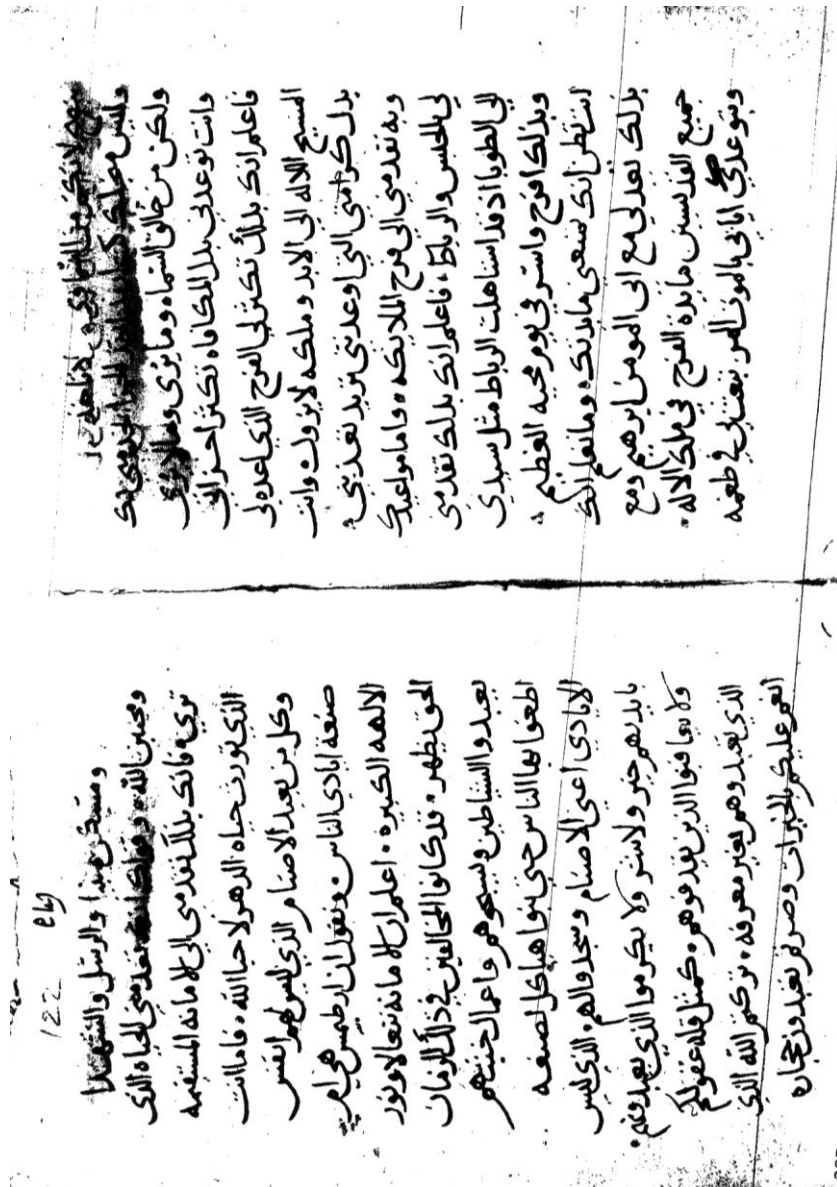 منهم لانك
وليس
ولكن من خالق السماء وما يرى وما لا يرى
وانت توعدني بدل المكافاه تكثر احزاني
فاعلم انك بذلك تكتر لي الفرح الذي اعده لي
المسيح الاله الي الابد وملكه لا يزول وانت
بدل كرامتي التي اوعدتني تريد تعذبني
وبه تقدمني الي فرح الملايكه واما مواعيدك
لي بالحبس والرباط فاعلم انك بذلك تقدمني
الي الطوبا اذ قد استاهلت الرباط مثل سيدي
وبذلك افرح واسر في يوم مجيه العظيم
انت تظن انك تمنعني مايدتك وما تعلم انك
بذلك تعد لي مع ابي المومنين ابرهيم ومع
جميع القديسين مايدة الفرح في ملك الاله
وبتوعدك اياي بالموت المر تبعت لي طعمه
122
والرسل والشهدا
ومحبين الله تقدمني للحياه الذي
تري فانك بذلك تقدمني الي الامانه المستقيمه
الذي تورث حياه الدهر لاحبا الله فاما انت
وكل من يعبد الاصنام الذي ليس لهم انفس
صنعة ايادي الناس وتقول ان ارطميس هي ام
الالهه الكبيره اعلم ان الامانه تتعالا ونور
الحق يظهر قد كانوا المخالفين في ذلك الزمان
يعبدوا الشياطين ويسبحوهم واعمال خبثهم
اطغوا بها الناس حتي بنوا هياكل لصنعه
الايادي اعني الاصنام وسجدوا لهم الذي ليس
بايديهم خير ولا شر ولا يكرموا الذي يعبدونهم
ولا يعاقبوا الذين يقذفوهم كمثل قلة عقولكم
الذي تعبدوهم بغير معرفه تركتم الله الذي
انعم عليكم بالخيرات وصرتم تعبدون حجاره